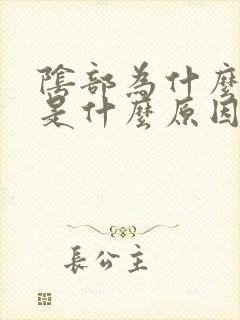 陰部為什麼
是什麼原因
長公主